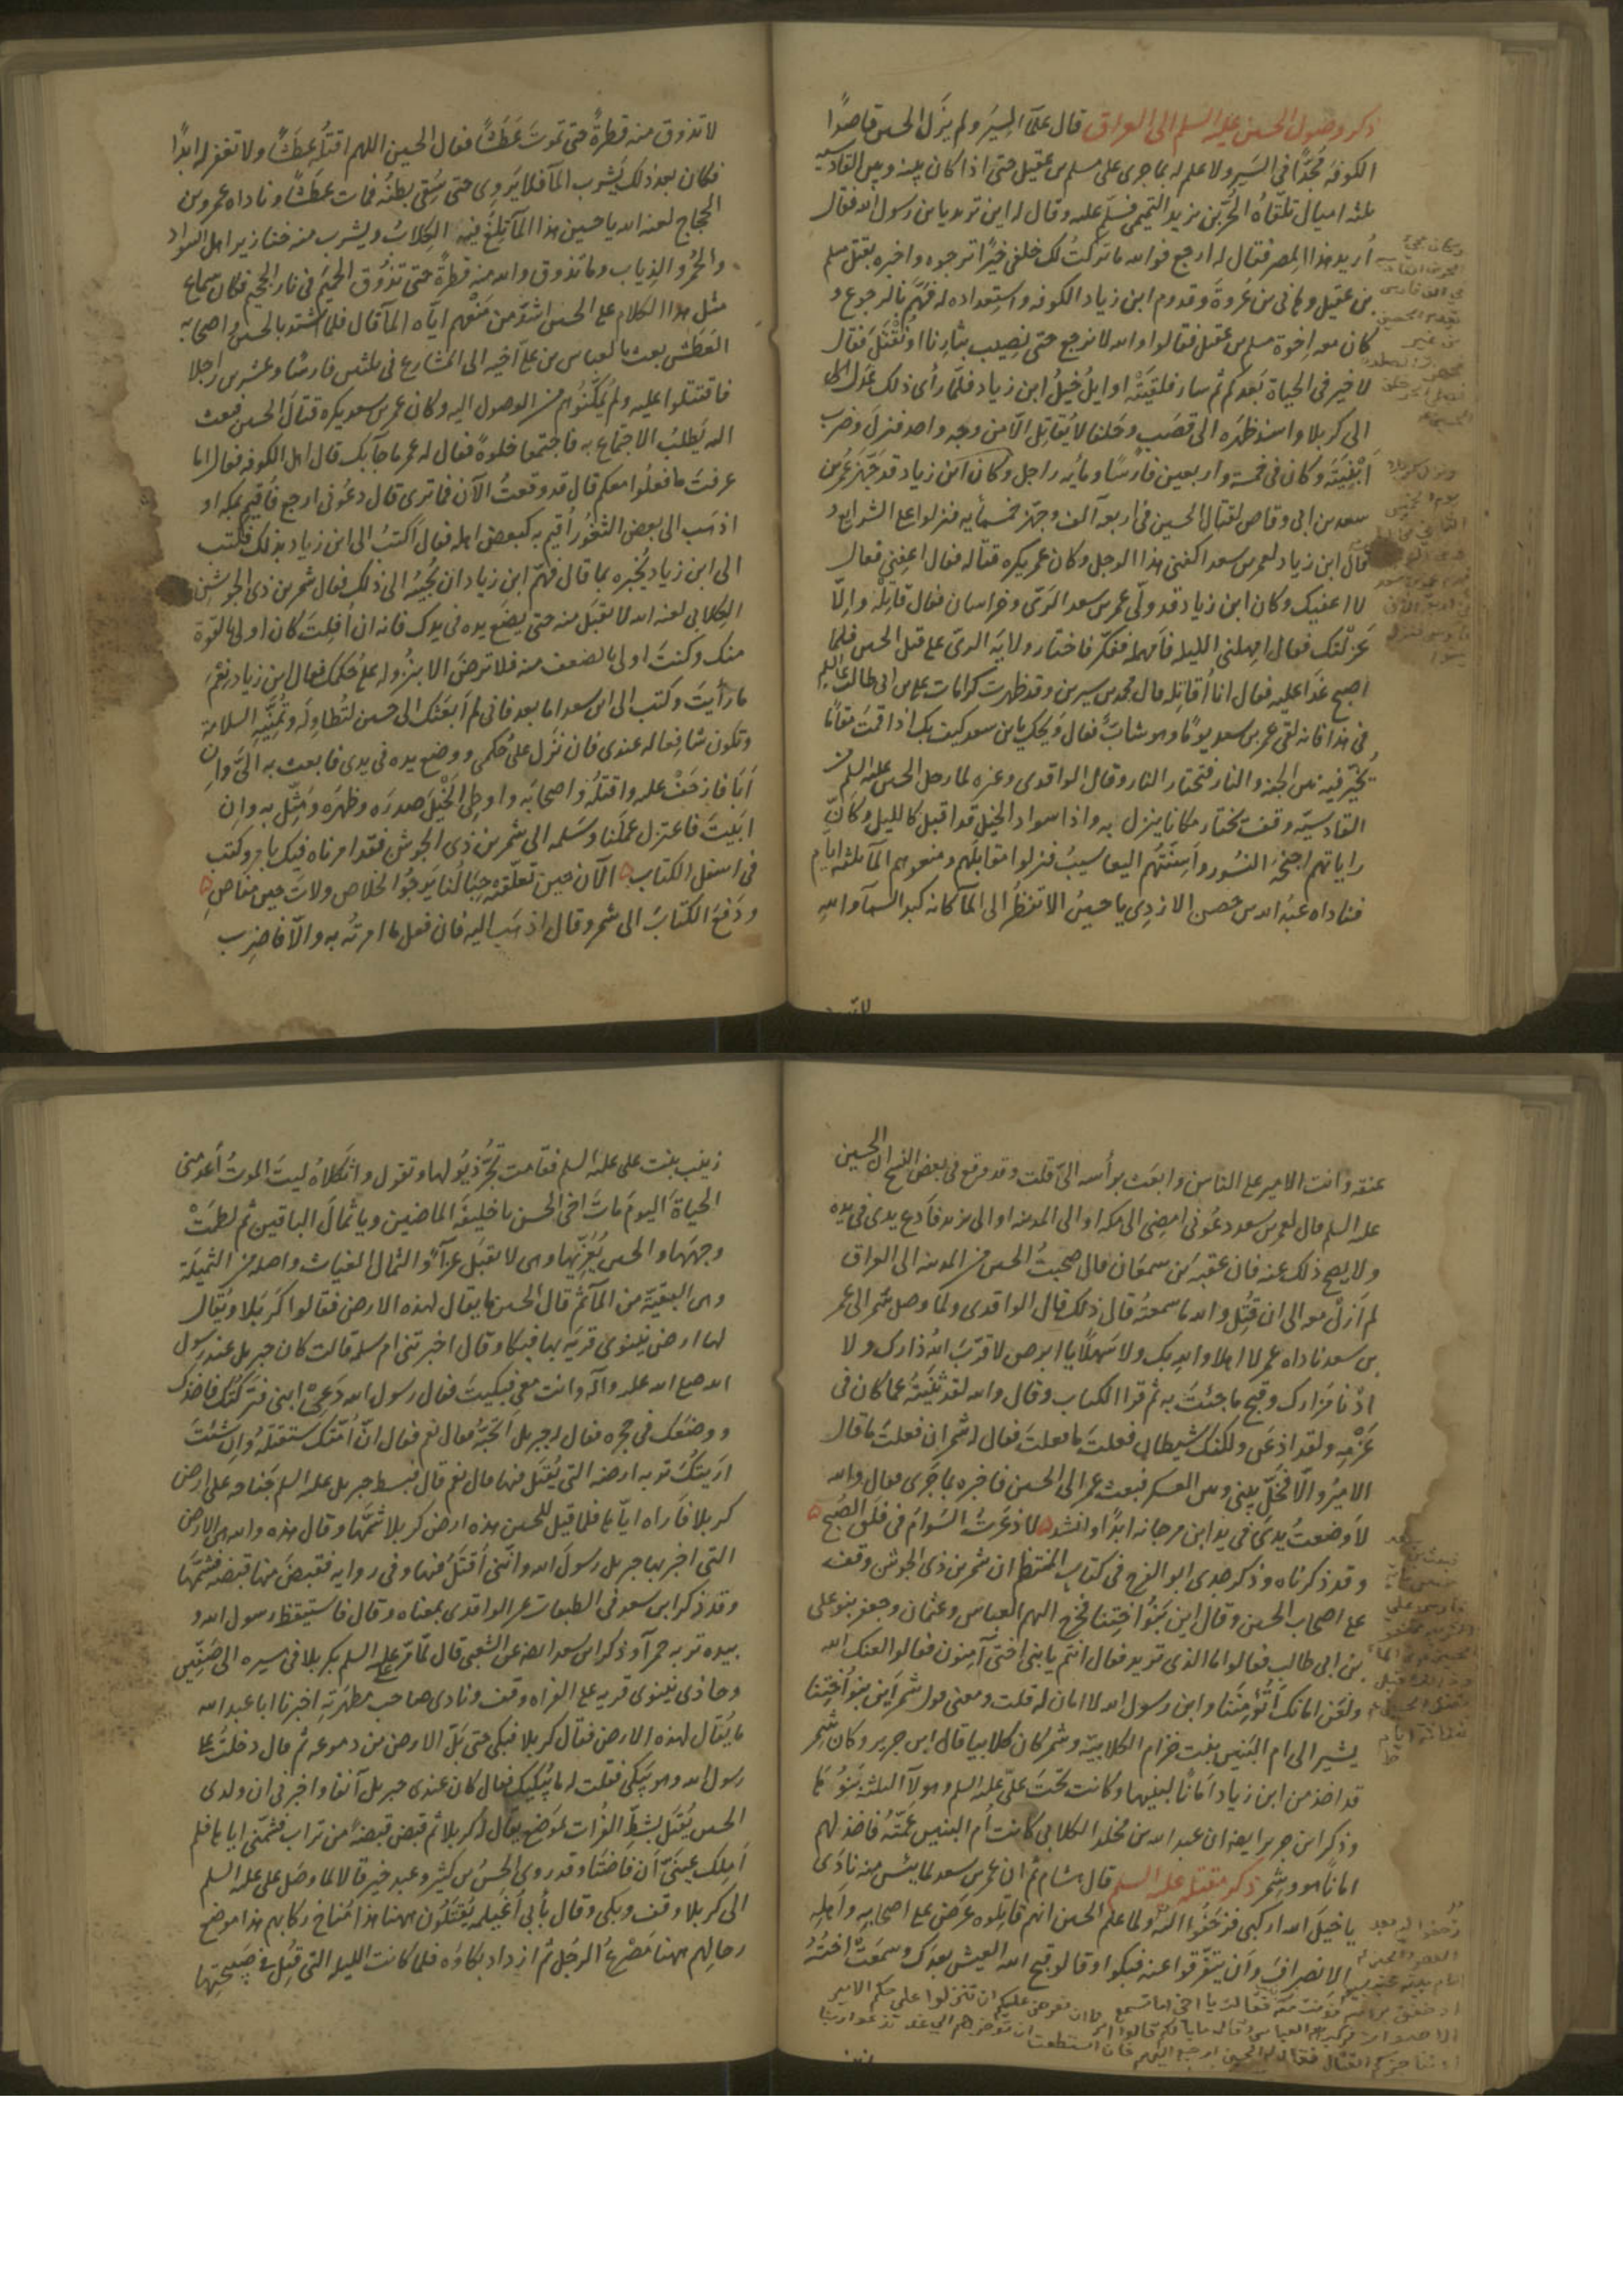 ذكر وصول الحسين عليه السلم الى العراق قال علمآ السِّيَر ولم يَزَل الحسين قاصدًا
الكوفة مُجِدًّا في السَّير ولا علم له بما جرى على مسلم بن عقيل حتى اذا كان بينه وبين القادسيه
ثلثه اميال تلقّاه الحُرّ بن يزيد التميمي فسلّم عليه وقال له اين تريد يا بن رسول الله فقال
أُريد هذا المِصر فقال له ارجع فوالله ما تركتُ لك خلفي خيرًا ترجوه واخبره بقتل مسلم
بن عقيل وهاني بن عُروةَ وقدوم ابن زياد الكوفه واستعداده له فهَمَّ بالرجوع و
كان معه اِخوة مسلم بن عقيل فقالوا والله لا نرجع حتى نصيب بثارِنا او نُقتَلَ فقال
لا خير في الحياة بَعْدكم ثم سار فلقيَتْه اوايل خيل ابن زياد فلمّا رأى ذلك عَدَل الى
الى كربلا واسند ظهرَه الى قصَب وحَلفا لا يُقاتِل الّا من وجه واحد فنزل وضرب
اَبْنِيَتَه وكان في خمسة واربعين فارسًا ومايه راجل وكان ابن زياد قد جَهَّزَ عُمر بن
سعد بن ابى وقاص لقتال الحسين في اربعه آلف وجهّز خمسمأيه فنزلوا على الشرايع و
قال ابن زياد لعمر بن سعد اكفنى هذا الرجل وكان عمر يكره قتاله فقال اعفِني فقال
لا اعفيك وكان ابن زياد قد ولّى عمر بن سعد الرَىّ وخراسان فقال قاتِلْه واِلّا
عَزلتُك فقال امهلني الليله فأمهله ففكّر فاختار ولايةَ الرىّ على قتل الحسين فلما
اصبح غدا عليه فقال انا أُقاتله قال محمد بن سيرين وقد ظهرت كرامات علي بن ابى طالب عليه السلم
في هذا فانه لقى عمر بن سعد يومًا وهو شابّ فقال وَيحك يا بن سعد كيف بك اذا قمتَ مقامًا
تُخَيَّر فيه بين الجنه والنار فتختار النار وقال الواقدى وغيره لما رحل الحسين عليه السلم من
القادسيّه وقف يختار مكانا ينزل به واذا سواد الخيل قد اقبل كالليل وكأنّ
راياتهم اجنحةُ النسُور واَسِنَّتُهم اليعاسيبُ فنزلوا مقابلَهم ومنعوهم المآ ثلثه ايّام
فناداه عبدُ الله بن حصن الازدي يا حسينُ الا تنظُر الى المآ كانه كبد السمآ والله
لا تذوق منه قطرةً حتى تموتَ عَطَشًا فقال الحسين اللهم اقتُلْه عطشًا ولا تغفر له ابدًا
فكان بعد ذلك يَشرب المآ فلا يَروِى حتى سُقِيَ بطنُه فمات عطشًا وناداه عمرو بن
الحجاج لعنه الله يا حسين هذا المآ تلِغُ فيه الكِلابُ ويشرب منه خنازير اهل السواد
والحُمُر والذِياب وما تذوق والله منه قطرةً حتى تذُوق الحميم في نار الجحيم فكان سماع
مثل هذا الكلام على الحسين اشدَّ من مَنْعِهم ايّاه المآ قال فلما اشتد بالحسين واصحابه
العَطَشُ بعث بالعباس بن عليّ اخيه الى المشارع في ثلثين فارسًا وعشرين راجلا
فاقتتلوا عليه ولم يُمَكِّنُوهم من الوصول اليه وكان عمر بن سعد يكره قتالَ الحسين فبعث
اليه يَطلبُ الاجتماع به فاجتمعا خلوةً فقال له عمر ما جآبك قال اهل الكوفه فقال اما
عرفتَ ما فعلُوا معكم قال قد وقعتُ الآن فما ترى قال دعُوني ارجع فأقيم بمكه او
اذهَب الى بعض الثغُور أقيم به كبعض اهله فقال أكتبُ الى ابن زياد بذلك فكتب
الى ابن زياد يُخبره بما قال فهمّ ابن زياد ان يُجيبَه الى ذلك فقال شمر بن ذى الجوشن
الكلابي لعنه الله لا تقبَل منه حتى يضع يده في يدك فانه ان أفلتَ كان اولى بالقوّة
منك وكنتَ اولى بالضعف منه فلا ترضَ الا بنُزُوله على حُكمك فقال ابن زياد نِعْمَ
ما رأيتَ وكتب الى ابن سعد اما بعد فانى لم اَبعَثك الى حسين لتُطاوِلَه وتُمَنّيَه السلامة
وتكون شافِعا له عندى فان نزل على حُكمى ووضع يده في يدى فابعث به الىّ وان
أبَا فازحَفْ عليه واقتلْه واصحابَه واوطِ الخيلَ صدرَه وظهرَه ومَثِّل به وان
ابَيتَ فاعتزل عملَنا وسَلمه الى شمر بن ذي الجوشن فقد امرناه فيك بامر وكتب
في اسفل الكتاب الآن حين تعلّقَتْه حِبالُنا يَرجُو الخلاص ولاتَ حين مناصِ
ودَفع الكتابَ الى شمر وقال اذهَب اليه فان فعل ما امرتُه به والّا فاضرب
عنقه وانت الامير على الناس وابعَث برأسه الىّ قلت وقد وقع في بعض النسخ ان الحسين
عليه السلم قال لعمر بن سعد دعُوني امضِى الى مكه او الى المدينه او الى يزيد فأدع يدى في يده
ولا يصح ذلك عنه فان عقبةَ بن سمعَان قال صحبتُ الحسين من المدينه الى العراق
لم اَزلْ معه الى ان قُتِل والله ما سمعتُه قال ذلك قال الواقدى ولمّا وصل شمر الى عمر
بن سعد ناداه عمر لا اهلا والله بك ولا سَهلًا يا ابرص لا قرّبَ اللهُ دارك ولا
ادْنا مَزارك وقبح ما جئتَ به ثم قرا الكتاب وقال والله لقد ثَنيتَه عمّا كان في
عَزْمِه ولقد اذعَن ولكنّك شيطان فعلتَ ما فعلتَ فقال له شمر ان فعلتَ ما قال
الاميرُ والّا فخَلّ بيني وبين العسكر فبعث عمر الى الحسين فاخبره بما جَرى فقال والله
لا وضعتُ يدىَ في يد ابن مرجانه ابدًا وانشد لا ذعَرتُ السَوامَ في فلَق الصُبحِ
وقد ذكرناه وذكر جدى ابو الفرج في كتاب المنتظم ان شمر بن ذى الجوشن وقف
على اصحاب الحسين وقال اين بَنُو اُختِنا فخرج اليهم العباسُ وعثمان وجعفر بنو على
بن ابى طالب فقالوا ما الذى تريد فقال انتم يا بنى اختى آمِنون فقالوا لعنك الله
ولعَن امانك أتُؤمِنُنا وابن رسول الله لا امان له قلت ومعنى قول شمر اين بنو أُختِنا
يشير الى ام البَنين بنت حزام الكلابيّة وشمر كان كلابيا قال ابن جرير وكان شمر
قد اخذ من ابن زياد اَمَانًا لبنيها وكانت تحْتَ علىّ عليه السلم وهولآ الثلثة بَنُوها
وذكر ابن جرير ايضا ان عبد الله بن مخلد الكلابى كانت أُم البنين عمّتُه فاخذ لهم
امانًا هو وشمر ذكر مقتله عليه السلم قال هشام ثم ان عمر بن سعد لما يئس منه نادى
يا خيلَ الله اركبى فزحَفُوا اليه ولما علم الحسين انهم قاتِلوه عرَض على اصحابه واهله
الانصرافَ وأن يتفرّقوا عنه فبكوا وقالوا قبح الله العيش بعدك وسمعَتْ اختُه
زينب بنت على عليه السلم فقامت تجُرّ ذيُولها وتقول واثكلاهُ ليتَ الموتُ أعدمنى
الحياةَ اليومَ ماتَ اخى الحسن يا خليفةَ الماضين ويا ثمالَ الباقين ثم لطمَتْ
وجهَها والحسين يُعَزّيها وهى لا تقبَل عزآءً والثمال الغياث واصله من الثميلَة
وهى البقيّة من المآ ثم قال الحسين ما يقال لهذه الارض فقالوا كَربَلا ويُقال
لها ارض نينوى قرية بها فبكا وقال اخبرتنى ام سلمه قالت كان جبريل عند رسول
الله صلى الله عليه وآله وانت معى فبكيتَ فقال رسول الله دَعى ابنى فتركتُك فاخذك
ووضعَك في حجره فقال له جبريل اَتُحِبّه فقال نعم فقال انّ امّتَك ستقتلُه وان شئتَ
اريتُك تربه ارضه التى يُقتَل فيها قال نعم قال فبسط جبريل عليه السلم جَناحه على ارض
كربلا فأراه ايّاها فلما قيل للحسين هذه ارض كربلا شمَّها وقال هذه والله هي الارض
التى اخبر بها جبريل رسولَ الله وانّنى أُقتَلُ فيها وفي روايه فقبضَ منها قبضه فشمّها
وقد ذكر ابن سعد في الطبقات عن الواقدى بمعناه وقال فاستيقظ رسول الله و
بيده تربه حمرآ وذكر ابن سعد ايضا عن الشعبى قال لمّا مرّ على عليه السلم بكربلا في سيره الى صِفّين
وحاذى نينوى قريه على الفراه وقف ونادى صاحب مطهَرَتِه اخبرنا ابا عبد الله
ما يُقال لهذه الارض فقال كربلا فبكى حتى بَلّ الارض من دموعه ثم قال دخلتُ على
رسول الله وهو يبكى فقلت له ما يُبكيك فقال كان عندى جبريل آنفا واخبرنى ان ولدى
الحسين يُقتَل بشطّ الفُرات بموضع يقال له كربلا ثم قبض قبضةً من تراب فشمّنى اياها فلم
اَملِك عينَىّ اَن فاضَتا وقد روى الحسنُ بن كثير وعبد خير قالا لما وصَل على عليه السلم
الى كربلا وقف وبكى وقال بأبى أُغَيلِمه يُقتَلُون ههنا هذا مُناخ رِكابهم هذا موضع
رحالهم ههنا مَصْرعُ الرجُل ثم ازداد بكاؤه فلما كانت الليله التى قُتِل في صَبيحتِها